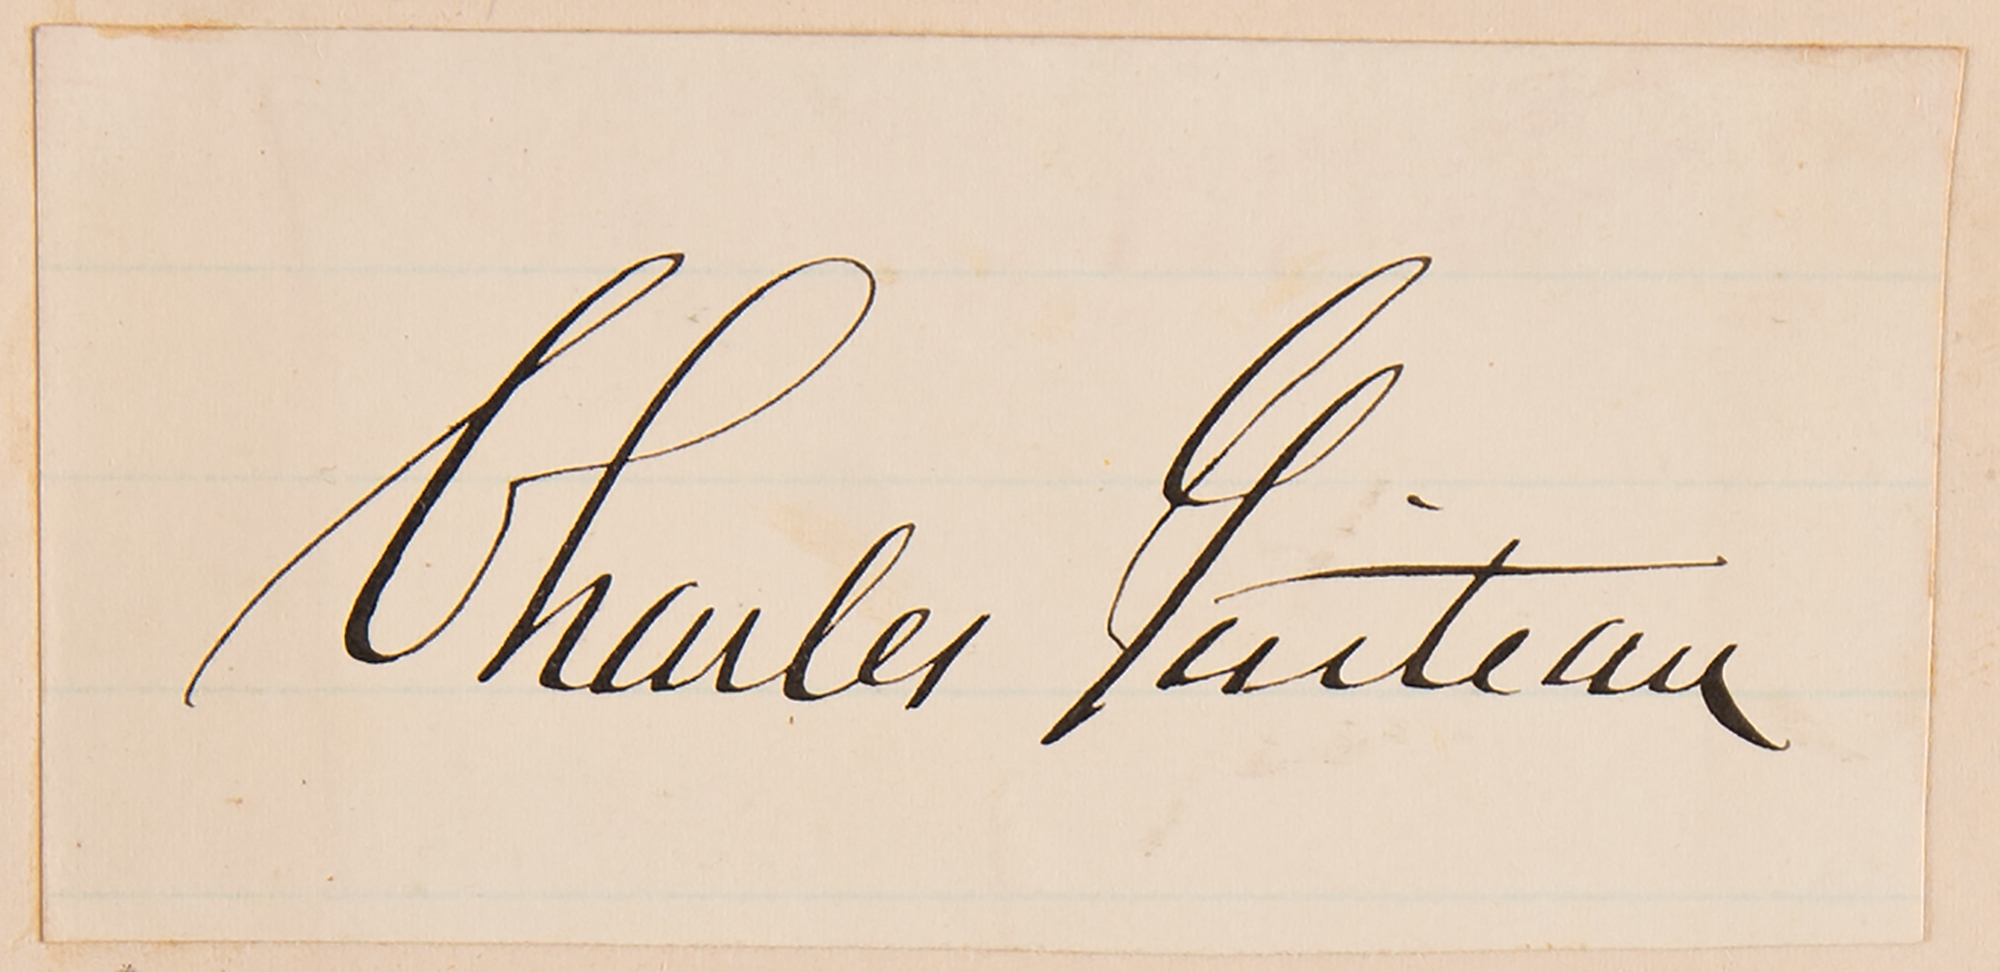 Charles Guiteau